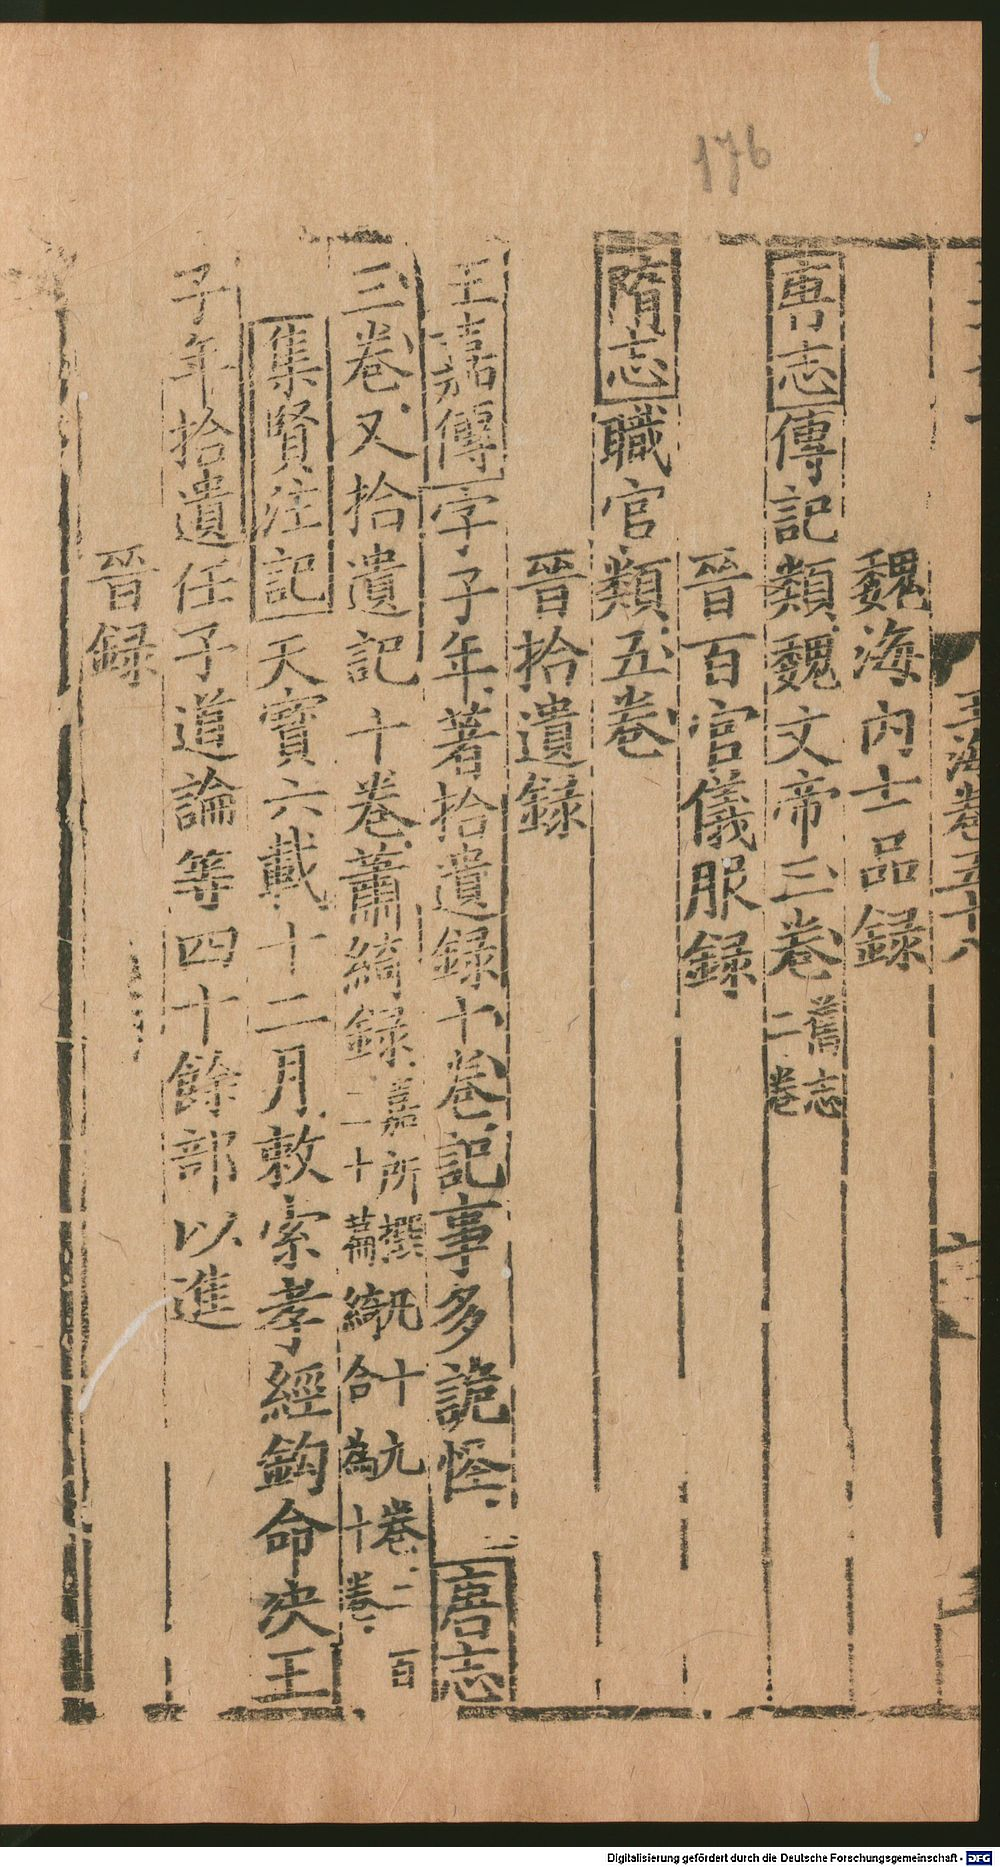 176
玉海卷五十八
魏海内士品録
唐志傳記類魏文帝三卷舊志二卷
晉百官儀服録
隋志職官類五卷
晉拾遺録
王嘉傳字子年著拾遺録十卷記事多詭怪唐志
三卷又拾遺記十卷蕭綺録嘉所撰凡十九卷二百二十篇綺合為十卷
集賢注記天寳六載十二月敕索孝經鉤命决王
子年拾遺任子道論等四十餘部以進
晉録
Digitalisierung gefördert durch die Deutsche Forschungsgemeinschaft - DFG